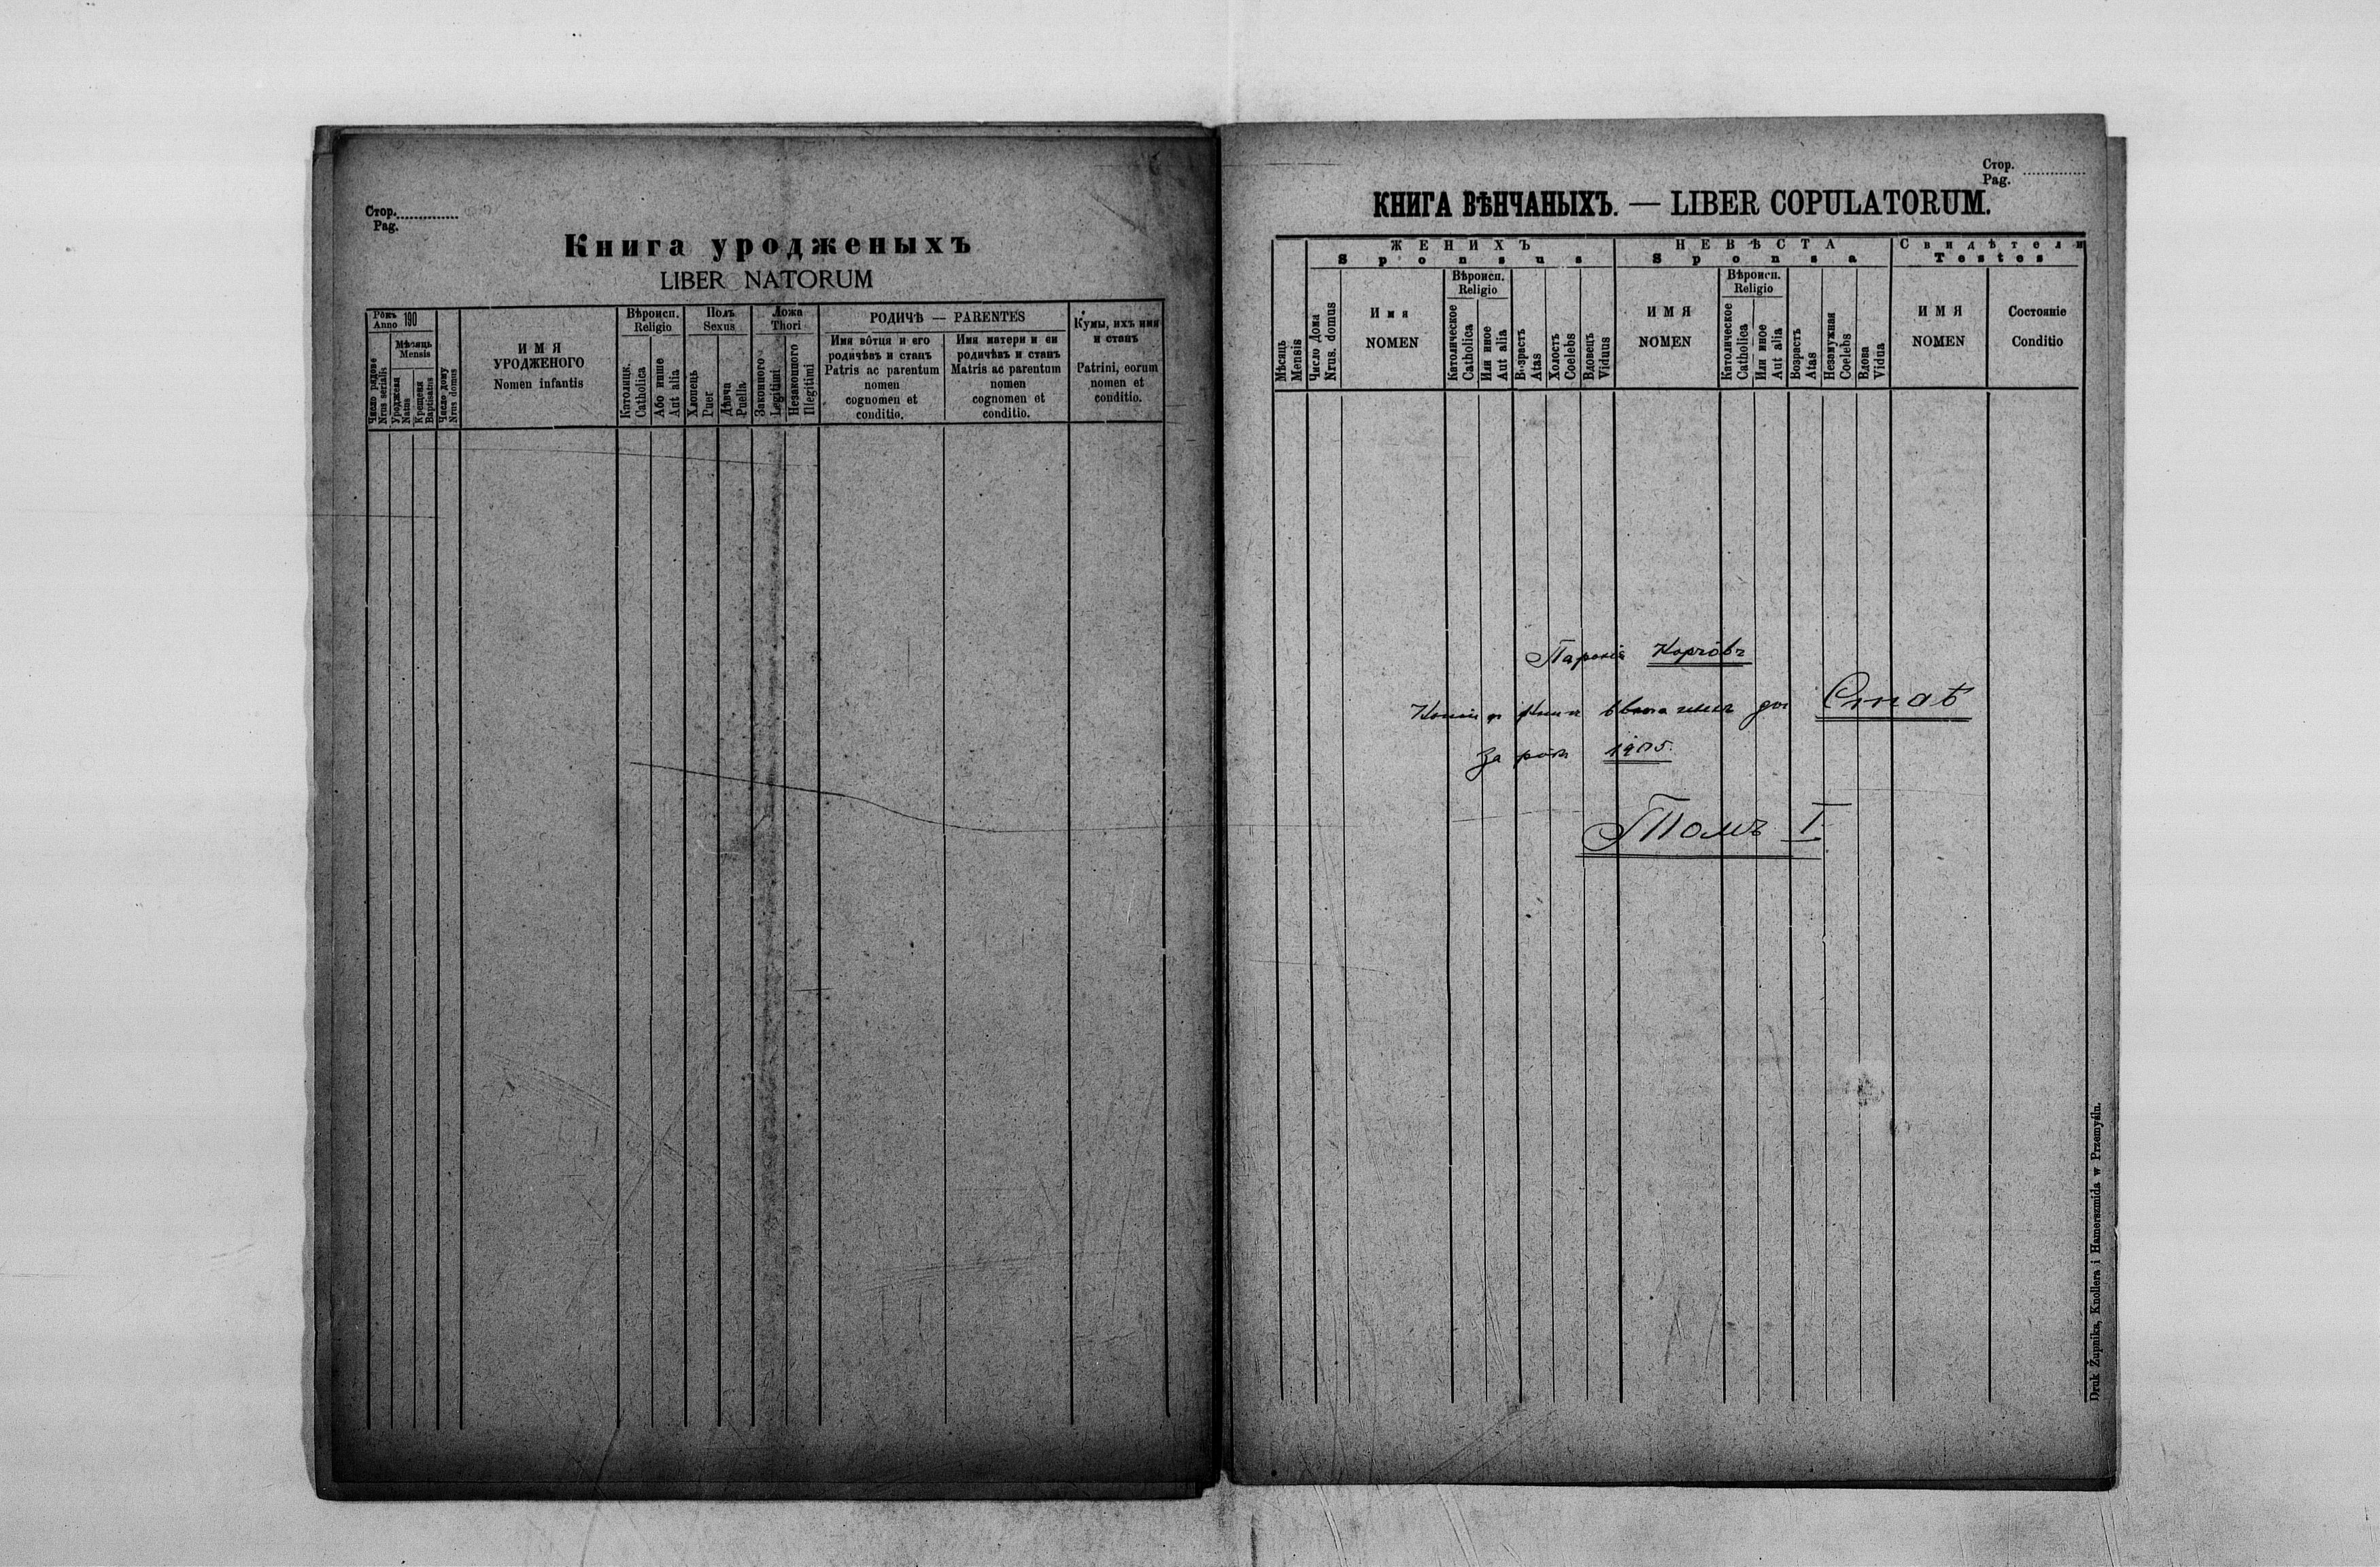 Стор.
Pag.
Книга уродженыхъ
LIBER NATORUM
Рокъ 190
Anno
Мѣсяць
Mensis
Число рядове
Nrus serialis
Уроджена
Natus
Крещеня
Baptisatus
Число дому
Nrus domus
ИМЯ
УРОДЖЕНОГО
Nomen infantis
Вѣроисп.
Religio
Католицк.
Catholica
Або инше
Aut alia
Полъ
Sexus
Хлопець
Puer
Дѣвча
Puella
Ложа
Thori
Законного
Legitimi
Незаконного
Illegitimi
РОДИЧѢ — PARENTES
Имя вôтця и его
родичѣвъ и станъ
Patris ac parentum
nomen
cognomen et
conditio.
Имя матери и еи
родичѣвъ и станъ
Matris ac parentum
nomen
cognomen et
conditio.
Кумы, ихъ имя
и станъ
Patrini, eorum
nomen et
conditio.
Стор.
Pag.
КНИГА ВѢНЧАНЫХЪ. — LIBER COPULATORUM.
Мѣсяць
Mensis
ЖЕНИХЪ
Sponsus
Число Дома
Nrus. domus
Имя
NOMEN
Вѣроисп.
Religio
Католическое
Catholica
Или иное
Aut alia
Возрастъ
Atas
Холостъ
Coelebs
Вдовецъ
Viduus
НЕВѢСТА
Sponsa
ИМЯ
NOMEN
Вѣроисп.
Religio
Католическое
Catholica
Или иное
Aut alia
Возрастъ
Atas
Незамужная
Coelebs
Вдова
Vidua
Свидѣтели
Testes
ИМЯ
NOMEN
Состояніе
Conditio
Парохія Корчôвъ
до
за рôкъ 1905.
Томъ I
Druk Żupnika, Knollera i Hamerszmida w Przemyślu.